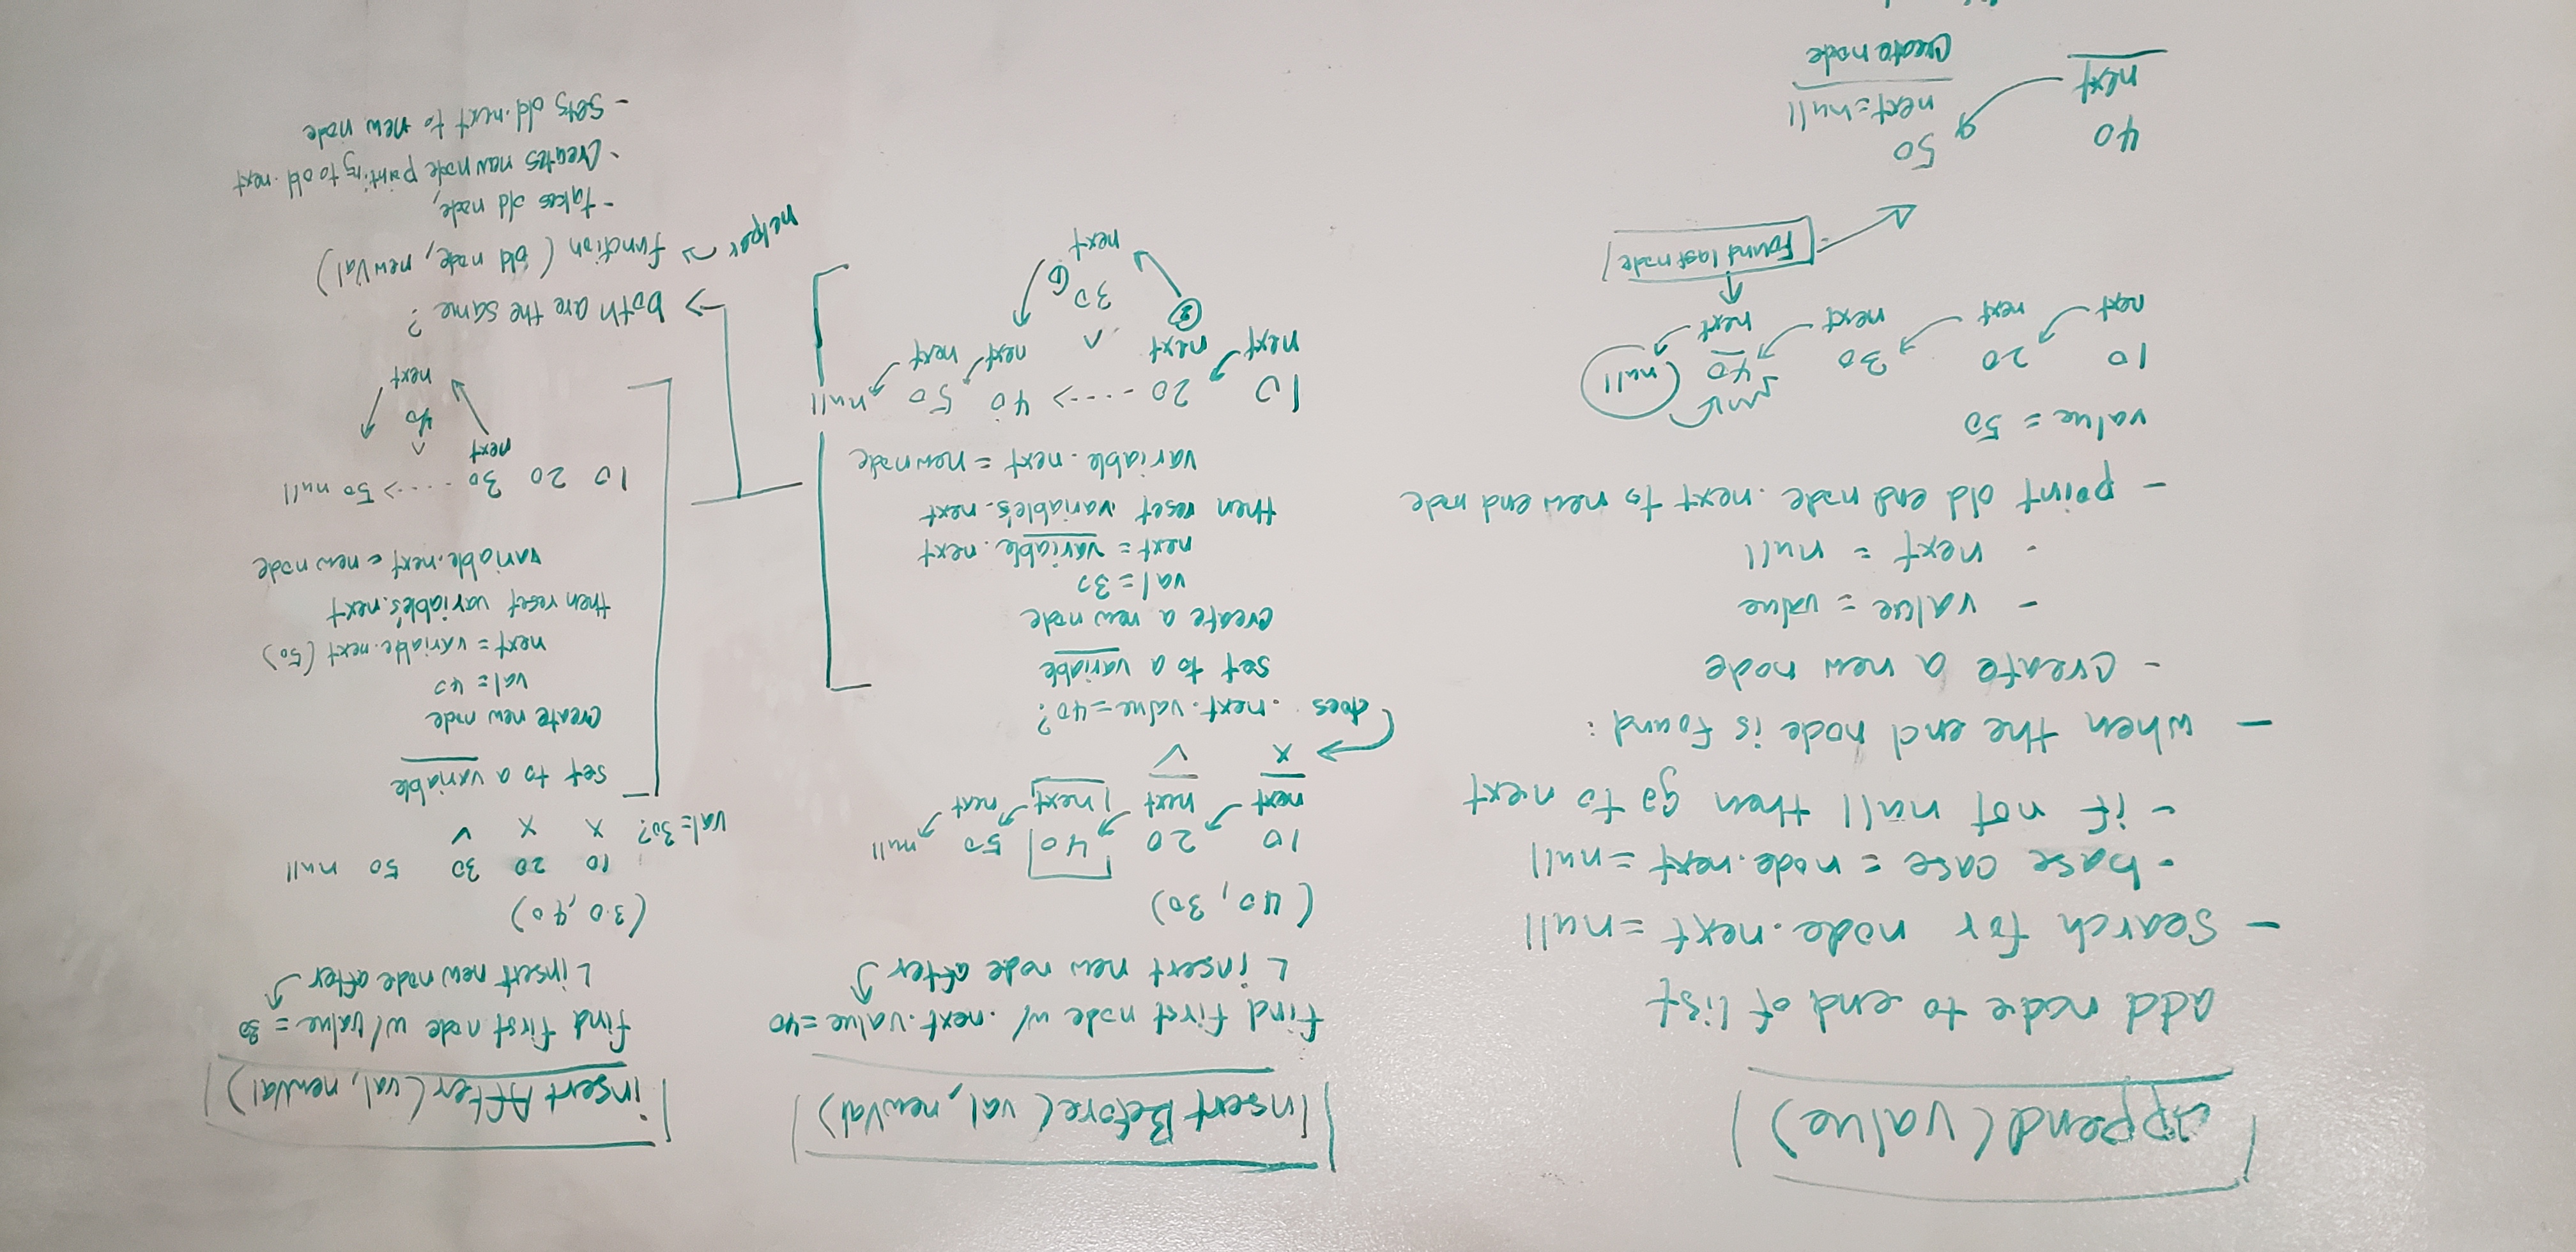 append(value)
add node to end of list
- search for node.next = null
- base case = node.next = null
- if not null then go to next
- when the end node is found:
- create a new node
- value = value
- next = null
- point old end node .next to new end node
value = 50
10 20 30 40 null
next next next next
Found last node
40 50
next next = null
Create node
Insert Before( val, newVal)
find first node w/ .next.value = 40
L insert new node after
(40, 30)
10 20 40 50 null
next next next next
x ✓
does .next.value = 40?
set to a variable
create a new node
val = 30
next = variable.next
then reset variable's.next
variable.next = new node
10 20 ----> 40 50 null
next next next next
2 ^
30 1
next
insert After(val, newVal)
find first node w/ value = 30
L insert new node after
(30, 40)
10 20 30 50 null
val = 30? x x ✓
set to a variable
create new node
val = 40
next = variable.next (50)
then reset variable's.next
variable.next = new node
10 20 30 ----> 50 null
next ^
40
next
both are the same?
helper function ( old node, newVal)
- takes old node,
- Creates new node pointing to old.next
- sets old.next to new node